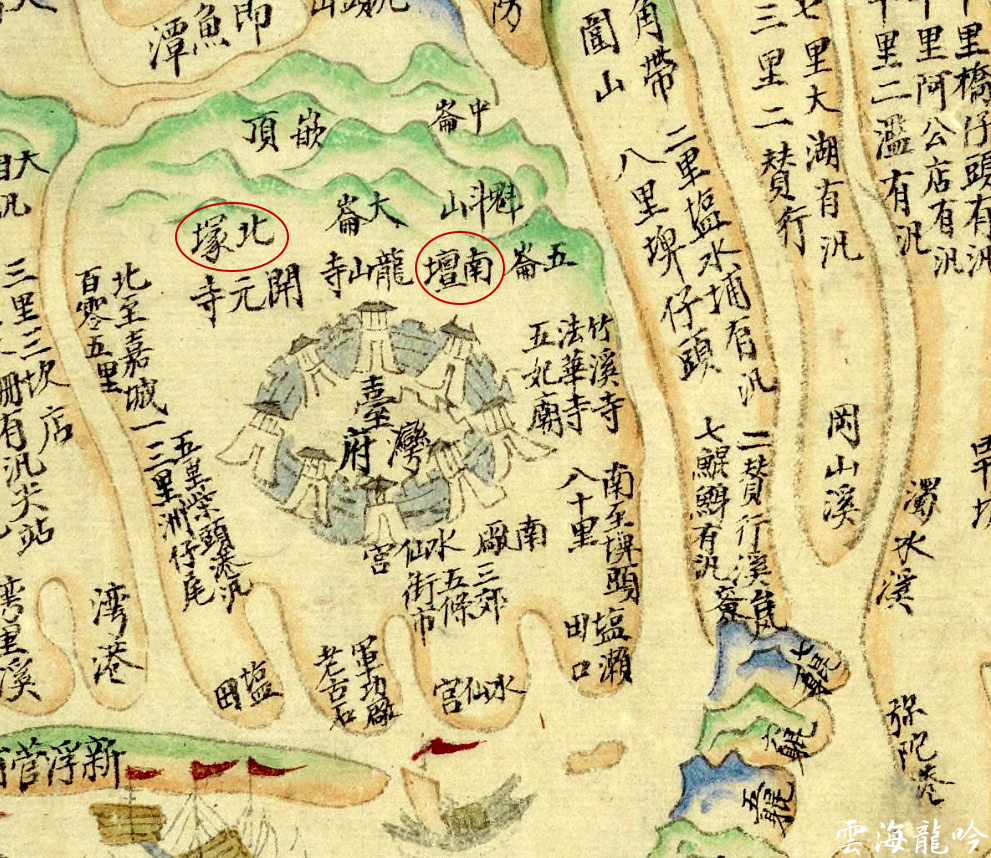 即
魚
潭
圖山
角帶
三里二贊行
七里大湖有汛
十里二濫有汛
十里阿公店有汛
十里橋仔頭有汛
中崙
嵌頂
大崙
魁斗山
北塚
開元寺
龍山寺
南壇
五崙
竹溪寺
法華寺
五妃廟
臺灣府
二里塩水埔有汛
八里埤仔頭
北至嘉城一
百零五里
三里三坎店
五里柴頭港汛
三里洲仔尾
南至埤頭
八十里
二贊行溪
七鯤鯓有汛
岡山溪
濁水溪
南廠
水仙宮
三郊
五條
街市
塩瀨
田口
水仙宮
軍功廠
老古石
塩田
湾港
湾里溪
七鯤
六鯤
五鯤
弥陀港
新浮菅
雲海龍吟